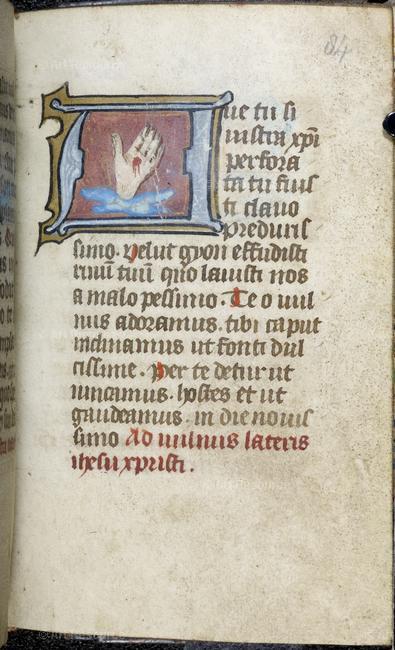 84
Aue tu si
nistra xpi
perfora
ta tu fuis
ti clauo
preduris
simo. velut gyon effudisti
riuū tuū quo lauisti nos
a malo pessimo. Te o vul
nus adoramus. tibi caput
inclinamus ut fonti dul
cissime. Per te detur ut
vincamus. hostes et ut
gaudeamus. in die nouis
simo Ad vulnus lateris
ihesu xpristi.